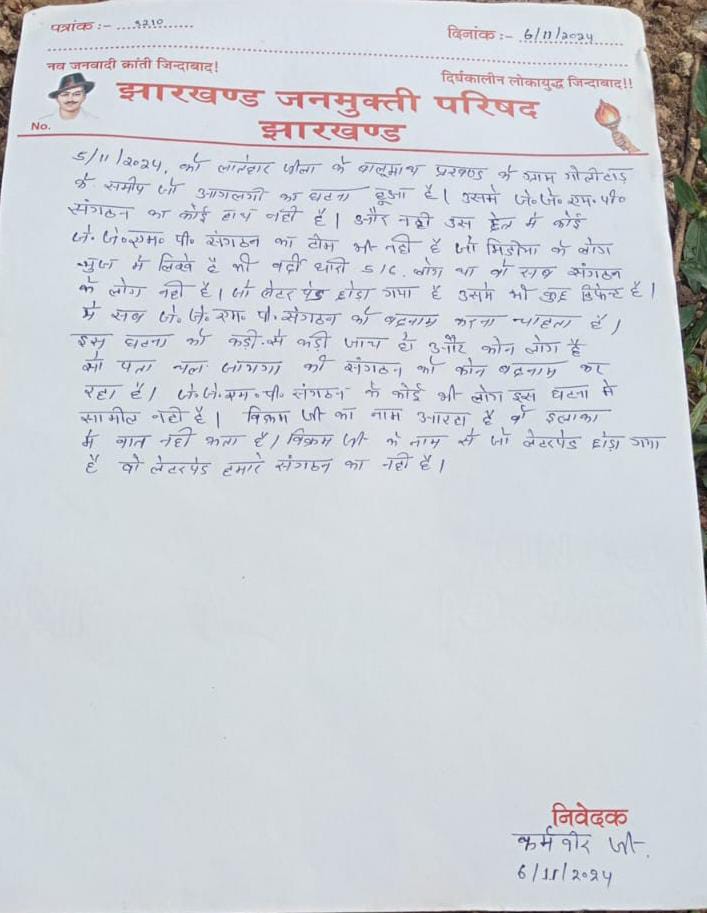 पत्रांक :- 9210
दिनांक :- 6/11/2024
नव जनवादी क्रांती जिन्दाबाद!
दिर्घकालीन लोकायुद्ध जिन्दाबाद!!
झारखण्ड जनमुक्ती परिषद
झारखण्ड
No.
5/11/2024, को लातेहार जीला के बालूमाथ प्रखण्ड के ग्राम गोलीटांड़
के समीप जो आगलगी का घटना हुआ है। उसमे जे॰जे॰एम॰पी॰
संगठन का कोई हाथ नही है। और नही उस क्षेत्र में कोई
जे॰जे॰एम॰पी॰ संगठन का टीम भी नही है जो मिडीया के लोग
में लिखे है की वर्दी धारी 5/6 लोग था वो सब संगठन
के लोग नही है। जो लेटर पेड छोड़ा गया है उसमे भी है।
ये सब जे॰जे॰एम॰पी॰संगठन को बदनाम करना चाहता है।
इस घटना को कड़ी-से कड़ी जाच हो और कोन लोग है
सो पता चल जायगा की संगठन को कोन बदनाम कर
रहा है। जे॰जे॰एम॰पी॰ संगठन के कोई भी लोग इस घटना में
सामील नही है। विक्रम जी का नाम आरहा है वो इलाका
में बात नही करता है। विक्रम जी के नाम से जो लेटरपेड छोड़ा गया
है वो लेटरपेड हमारे संगठन का नही है।
निवेदक
कर्मवीर जी
6/11/2024